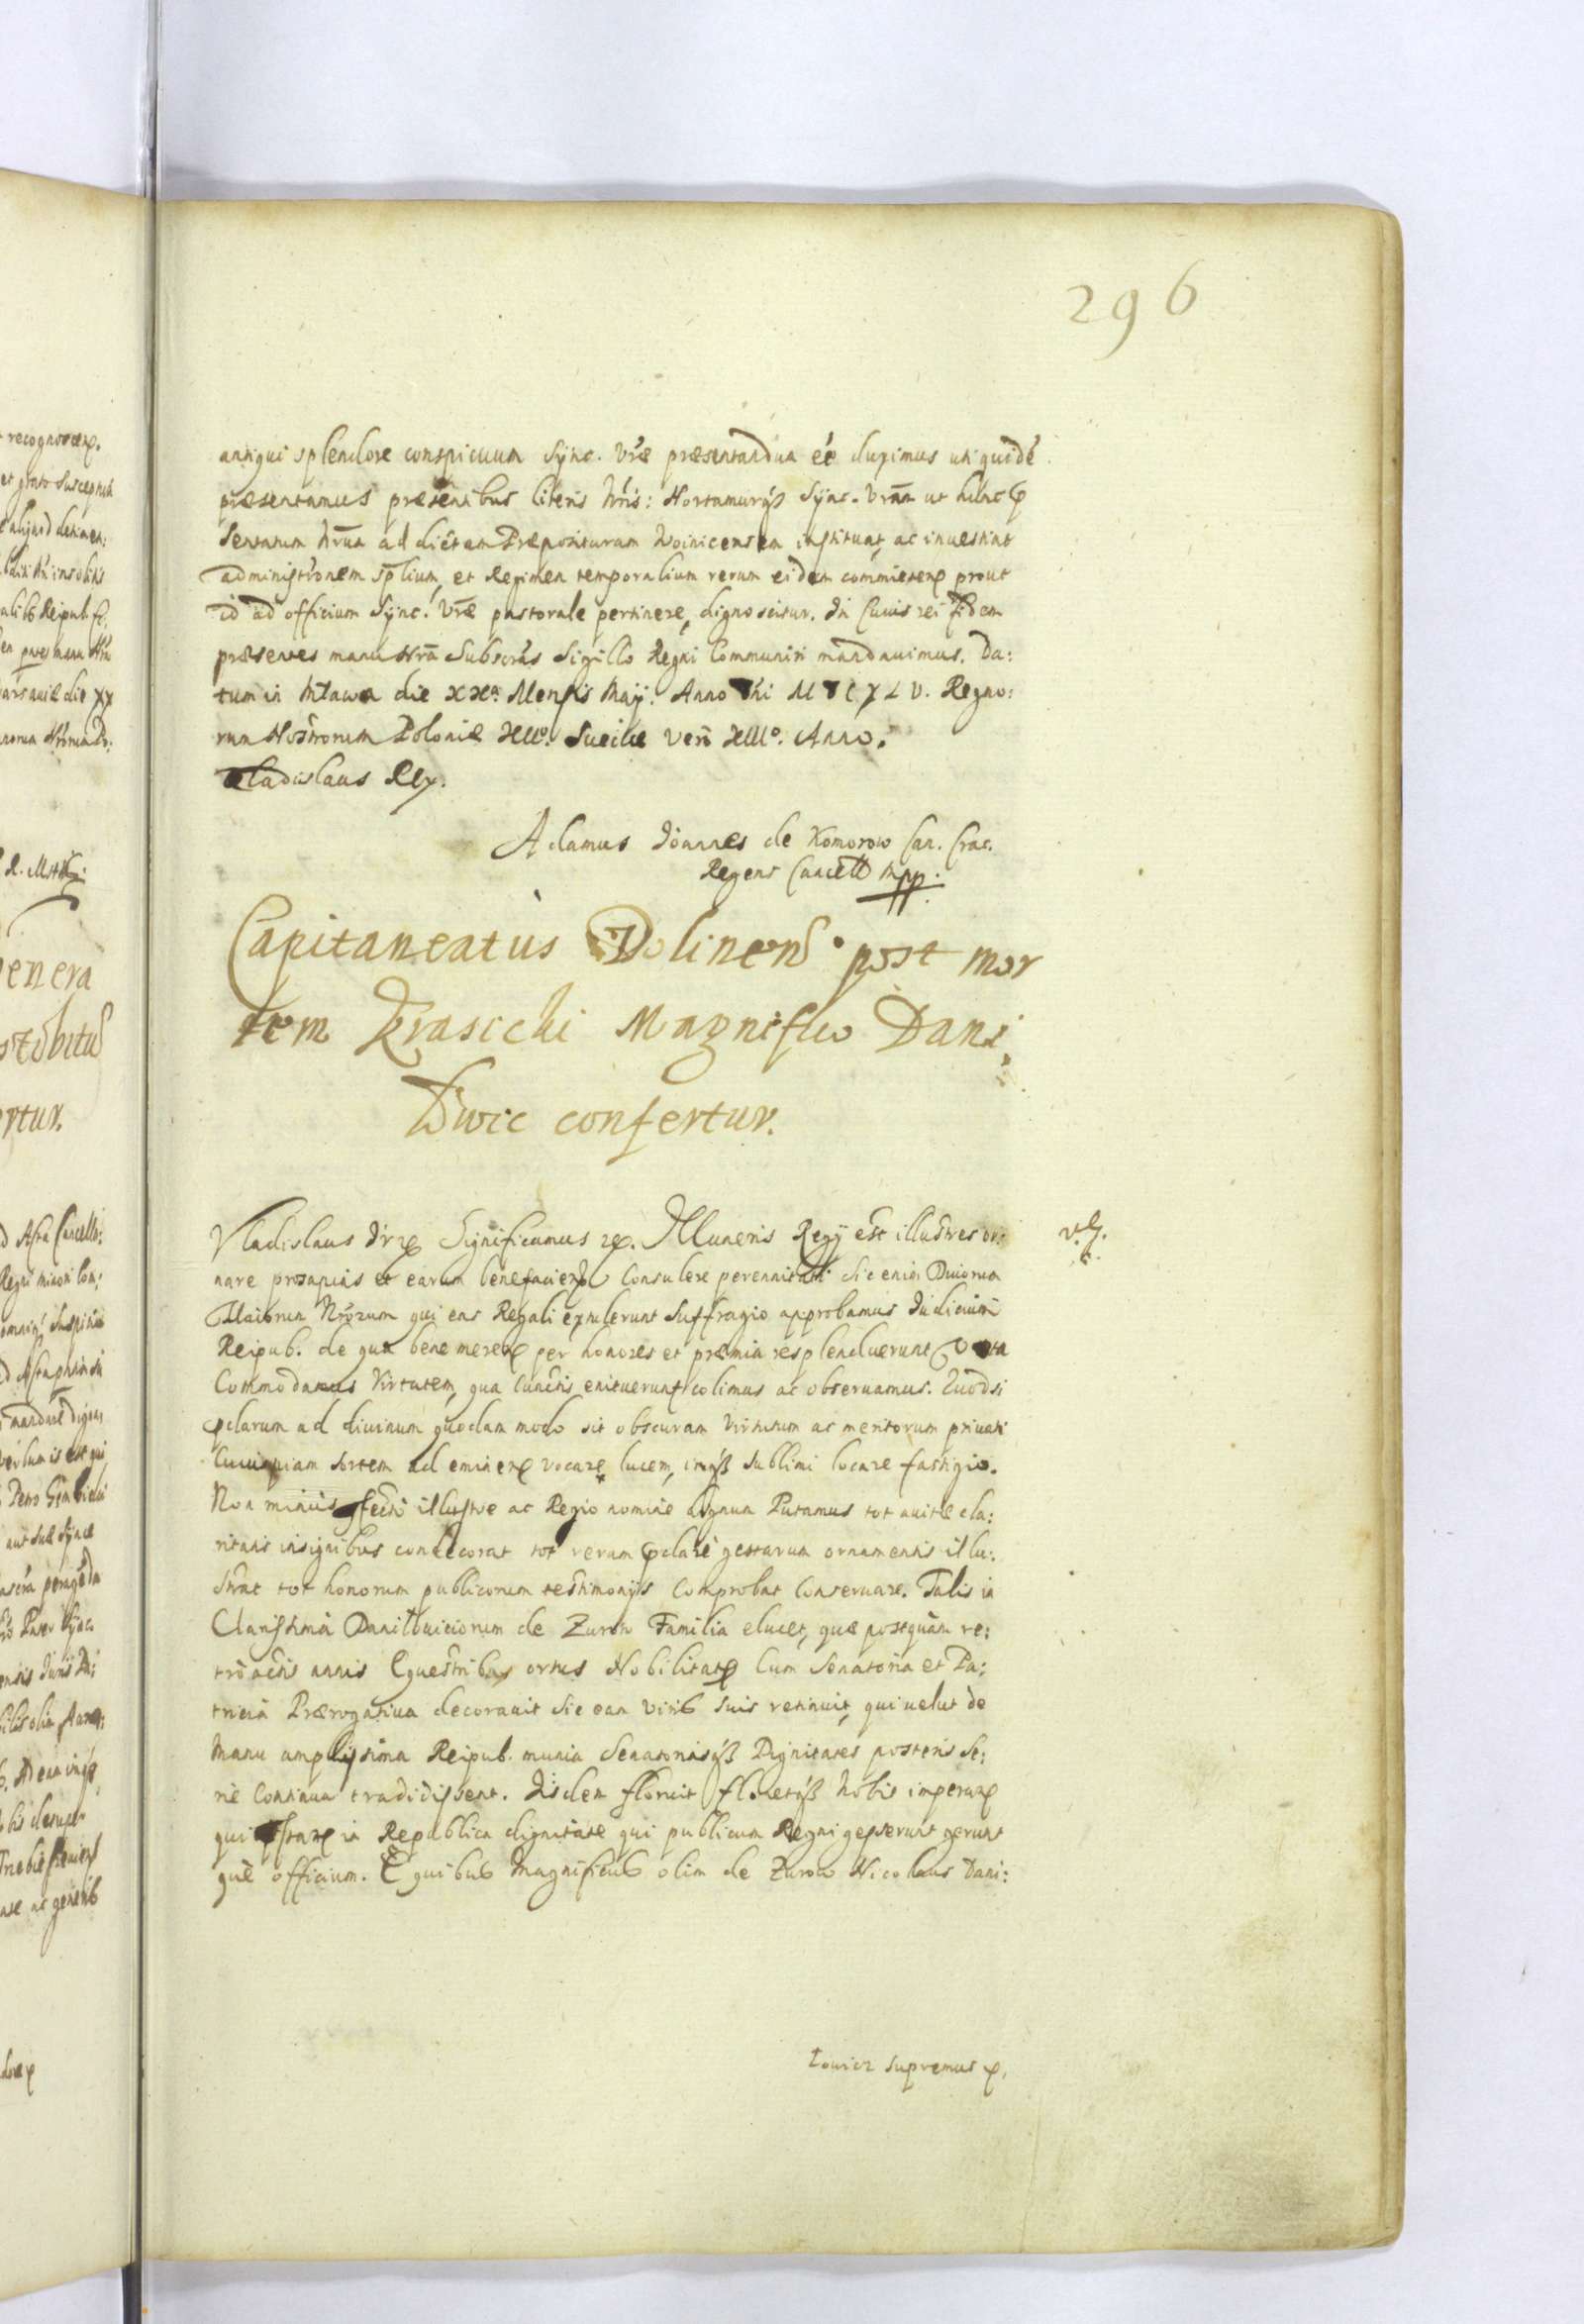 296
antiqui splendore conspicuum Sync. Vrae praesentandum eé duximus uti quidé
praesentamus praesentibus literis Nris: Hortamurq3 Sync. Vram ut hunc
sentatum Nrum ad dictam Praeposituram Woinicensem instituat, ac inuestiat
administronem splium, et Regimen temporalium rerum eidem committen prout
id ad officium Sync. Vrae pastorale pertinere, dignoscitur. In Cuius rei fidem
praesentes manu Nra Subscras Sigillo Regni Communiri mandauimus. Da:
tum in Mlawa die XXa. Mensis Maij. Anno Dni M D C X L V. Regno:
rum Nostrorum Poloniae XIIIo. Sueciae vero XIIIo. Anno.
Vladislaus Rex.
Adamus Joannes de Komorow Can. Crac.
Regens Cancell mpp.
Capitaneatus Dolinens post mor
tem Krasicki Magnifico Dani:
lowic confertur.
Vladislaus Significamus Muneris Regij est illustres or:
nare prosapias et earum benefaciendo Consulere perennitati sic enim Diuorum
Maiorum Nrorum qui eas Regali extulerunt Suffragio approbamus Iudicium
Reipub. de qua bene meren per honores et praemia resplenduerunt
Commodamus Virtutem, qua cunctis enituerunt colimus ac obseruamus. Quodsi
clarum ad diuinum quodam modo sit obscuram Virtutum ac meritorum priuati
Cuiuspiam sortem ad eminen vocare lucem, inq3 sublimi locare fastigio.
Non minus illustre ac Regio nomine dignum Putamus tot auitae cla:
ritatis insignibus condecorat tot rerum clare gestarum ornamentis illu:
strat tot honorum publicorum testimonijs Comprobat Conseruare. Talis in
Clarissima Danilouiciorum de Zurow Familia elucet, quae postquam re:
troactis annis Equestribus ortus Nobilitate Cum Senatoria et Pa:
tricia Praerogatiua decorauit sic eam viris suis retinuit, qui uelut de
manu amplissima Reipub. munia Senatoriasq3 Dignitates posteris Se:
rie Continua tradidissent. Iisdem floruit floretq3 Nobis imperan
qui in Republica dignitate qui publicum Regni gesserunt gerunt
que officium. E quibus Magnificus olim de Zurow Nicolaus Dani:
lowicz supremus